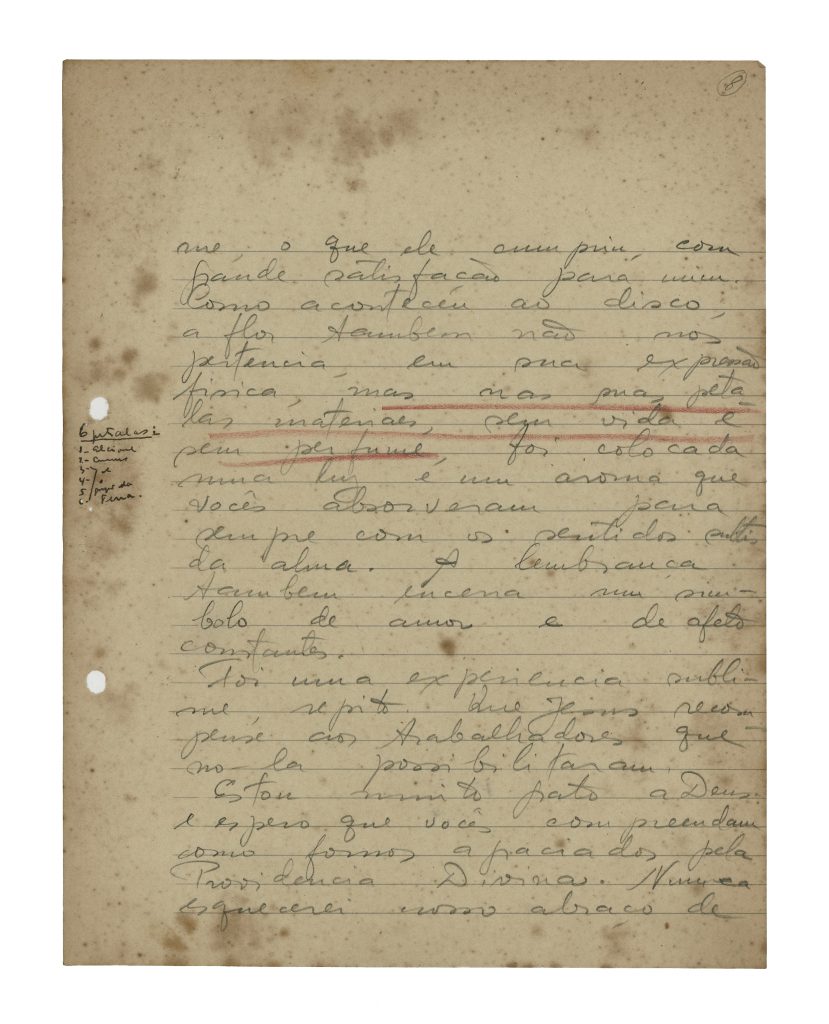 8
me, o que ele cumpriu, com
grande satisfação para mim.
Como aconteceu ao disco,
a flor tambem não nos
pertencia, em sua expressão
fisica, mas nas suas peta-
las materiaes, sem vida e
sem perfume, foi colocada
uma luz e um aroma que
vocês absorveram para
sempre com os sentidos subtis
da alma. A lembrança
tambem encerra um sim-
bolo de amor e de afeto
constantes.
Foi uma experiencia subli-
me, repito. Que Jesus recom
pense aos trabalhadores que
no-la possibilitaram.
Estou muito grato a Deus
e espero que vocês compreendam
como fomos agraciados pela
Providencia Divina. Nunca
esquecerei nosso abraço de
6 petalas:
1-
2-
3-
4-
5
6.